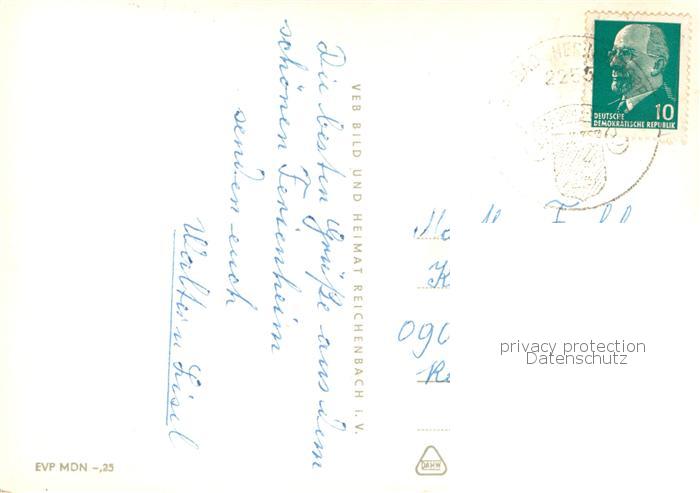 Die besten Grüße aus dem
schönen Ferienheim
senden euch
Walter u. Lisel
VEB BILD UND HEIMAT REICHENBACH I. V.
EVP MDN –,25
10
DEUTSCHE
DEMOKRATISCHE REPUBLIK
090
DAMW
privacy protection
Datenschutz